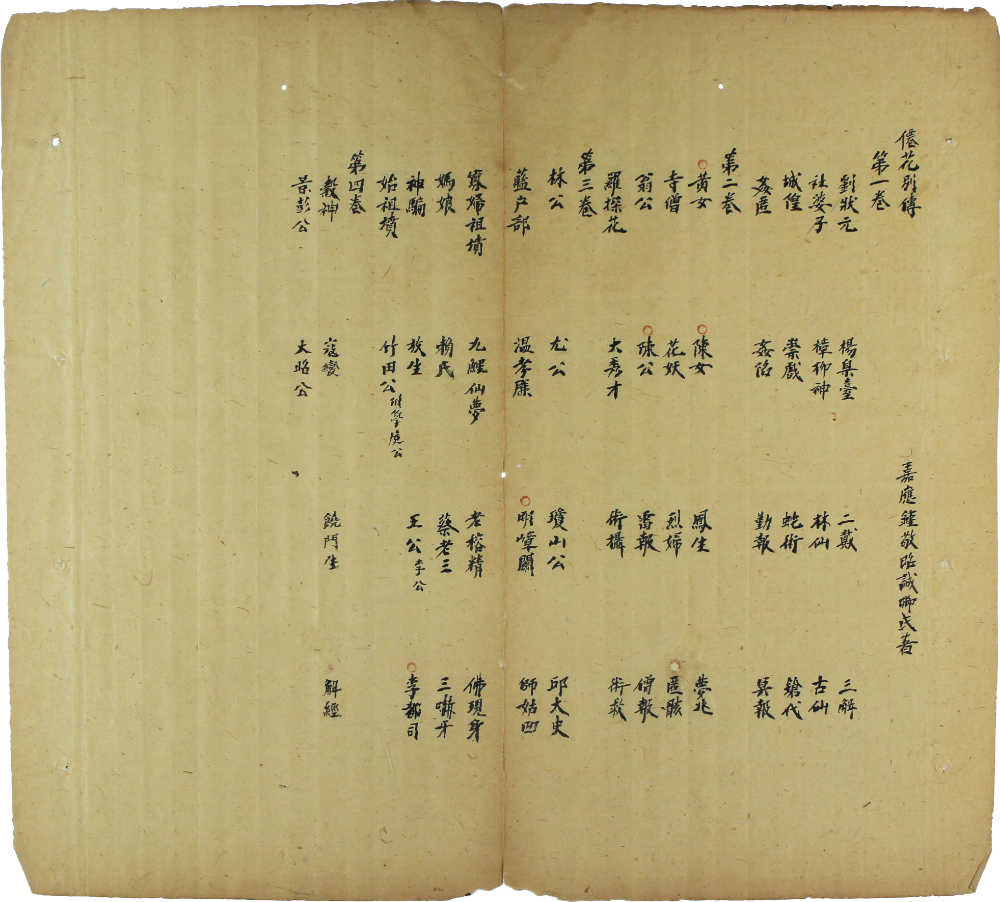 倦花別傳 嘉應鍾敬昭誠卿氏著
第一卷
劉狀元 楊臬臺 二戴 三解
社婆子 樟柳神 林仙 古仙
城隍 祟戲 蛇術 鎗代
姦匿 姦陷 勤報 冥報
第二卷
黃女 陳女 鳳生 夢兆
寺僧 花妖 烈婦 匿骸
翁公 陳公 雷報 僧報
羅探花 大秀才 術攝 術救
第三卷
林公 尤公 瓊山公 邱大史
藍户部 溫孝廉 明嶂關 師姑凹
寡婦祖墳 九鯉仙夢 老榕精 佛現身
媽娘 賴氏 蔡老三 三嘶牙
神騙 放生 王公 李公 李都司
始祖墳 竹田公
第四卷
穀神 寇變 饒門生 解經
景彭公 大昭公